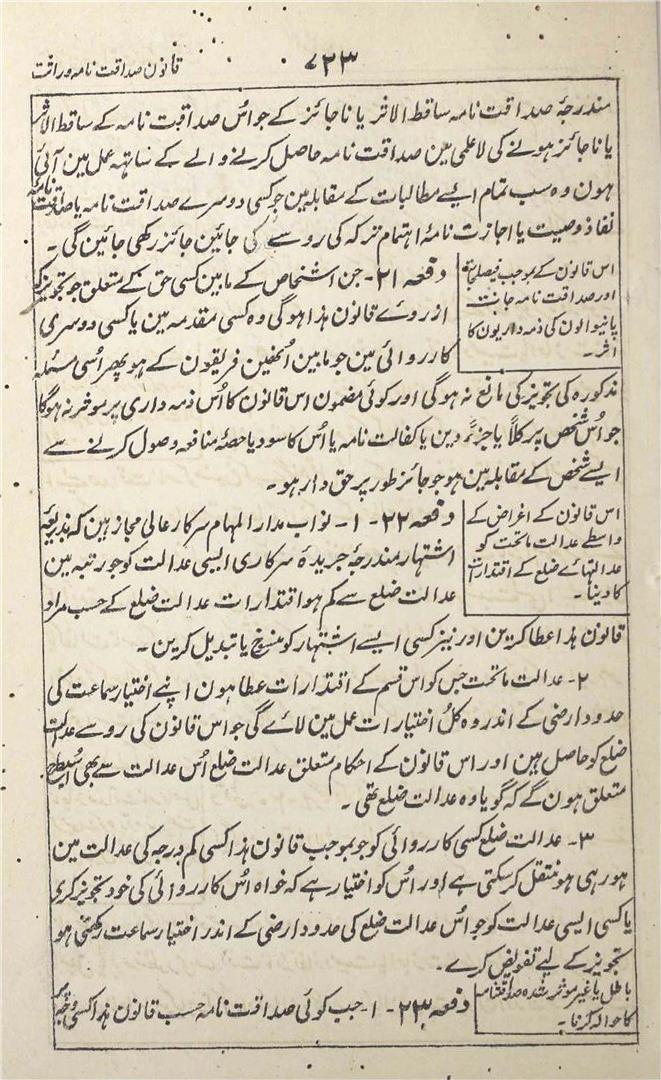 ۷۲۳
قانون صداقت نامہ وراثت
مندرجۂ صداقت نامہ ساقط الاثر یا ناجائز کے جو اُس صداقت نامہ کے ساقط الاثر
یا ناجائز ہونے کی لاعلمی مین صداقت نامہ حاصل کرنے والے کے ساتھ عمل مین آئی
ہون وہ سب تمام ایسے مطالبات کے مقابلہ مین جو کسی دوسرے صداقت نامہ یا صداقت نامہ
نفاذ وصیت یا اجازت نامۂ اہتمام ترکہ کی رو سے کی جائین جائز رکھی جائین گی۔
اس قانون کے بموجب فیصلجات
اور صداقت نامہ جات
پانیوالون کی ذمہ داریون کا
اثر۔
دفعہ ۲۱۔ جن اشخاص کے مابین کسی حق کے متعلق جو تجویز کہ
از روے قانون ہذا ہوگی وہ کسی مقدمہ مین یا کسی دوسری
کارروائی مین جو مابین اُنھین فریقون کے ہو پھر اُسی مسئلہ
مذکورہ کی تجویز کی مانع نہ ہوگی اور کوئی مضمون اس قانون کا اُس ذمہ داری پر موثر نہ ہوگا
جو اُس شخص پر کلاً یا جزءً دین یا کفالت نامہ یا اُس کا سود یا حصۂ منافعہ وصول کرنے سے
ایسے شخص کے مقابلہ مین ہو جو جائز طور پر حق دار ہو۔
اس قانون کے اغراض کے
واسطے عدالت ماتحت کو
عدالتہاے ضلع کے اقتدارات
کا دینا۔
دفعہ ۲۲۔ ۱۔ نواب مدار المہام سرکار عالی مجاز ہین کہ بذریعہ
اشتہار مندرجۂ جریدۂ سرکاری ایسی عدالت کو جو رتبہ مین
عدالت ضلع سے کم ہو اقتدارات عدالت ضلع کے حسب مراد
قانون ہذا عطا کرین اور نیز کسی ایسے اشتہار کو منسوخ یا تبدیل کرین۔
۲۔ عدالت ماتحت جس کو اس قسم کے اقتدارات عطا ہون اپنے اختیار سماعت کی
حدود ارضی کے اندر وہ کل اختیارات عمل مین لاے گی جو اس قانون کی رو سے عدالت
ضلع کو حاصل ہین اور اس قانون کے احکام متعلق عدالت ضلع اُس عدالت سے بھی اُسیطرح
متعلق ہون گے کہ گویا وہ عدالت ضلع تھی۔
۳۔ عدالت ضلع کسی کارروائی کو جو بموجب قانون ہذا کسی کم درجہ کی عدالت مین
ہو رہی ہو منتقل کر سکتی ہے اور اُس کو اختیار ہے کہ خواہ اُس کارروائی کی خود تجویز کرے
یا کسی ایسی عدالت کو جو اُس عدالت ضلع کی حدود ارضی کے اندر اختیار سماعت رکھتی ہو
تجویز کے لیے تفویض کرے۔
باطل یا غیر موثر شدہ صداقتنامہ
کا حوالہ کرنا۔
دفعہ ۲۳۔ ۱۔ جب کوئی صداقت نامہ حسب قانون ہذا کسی